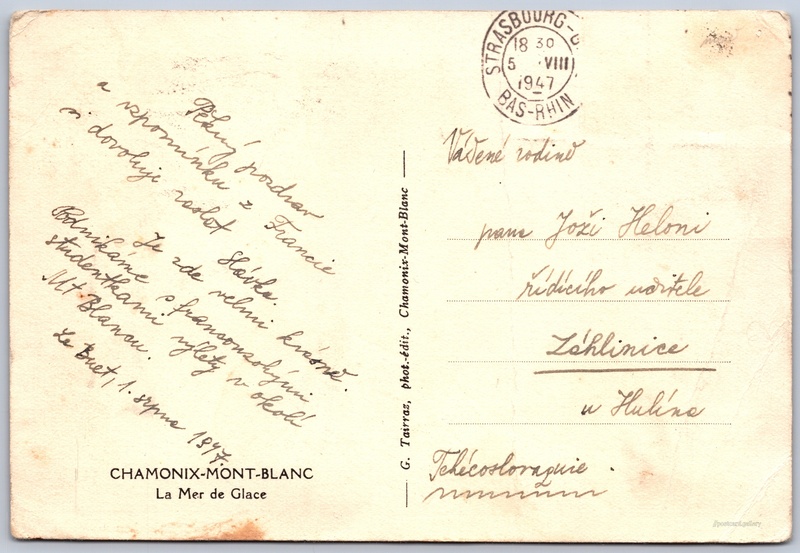 Pěkný pozdrav
a vzpomínku z Francie
si dovoluje zaslat Slávka.
Je zde velmi krásně.
Podnikáme s francouzskými
studentkami výlety v okolí
Mt Blancu.
Le Buet, 1. srpna 1947.
CHAMONIX-MONT-BLANC
La Mer de Glace
G. Tairraz, phot.-édit., Chamonix-Mont-Blanc
STRASBOURG-G
18 30
5 VIII
1947
BAS-RHIN
Vážené rodině
pana Joži Heloni
řídícího učitele
Záhlinice
u Hulína
Tchécoslovaquie.